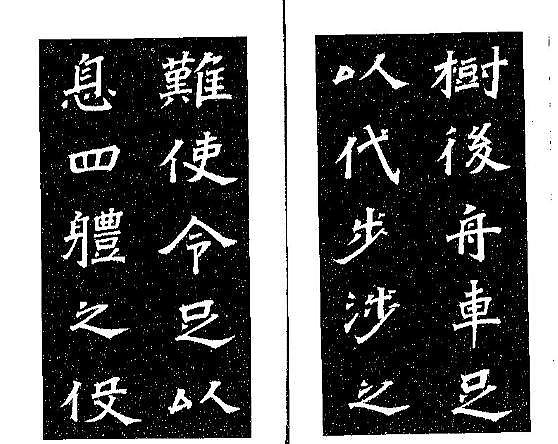 樹後舟車足
以代步涉之
難使令足以
息四體之役